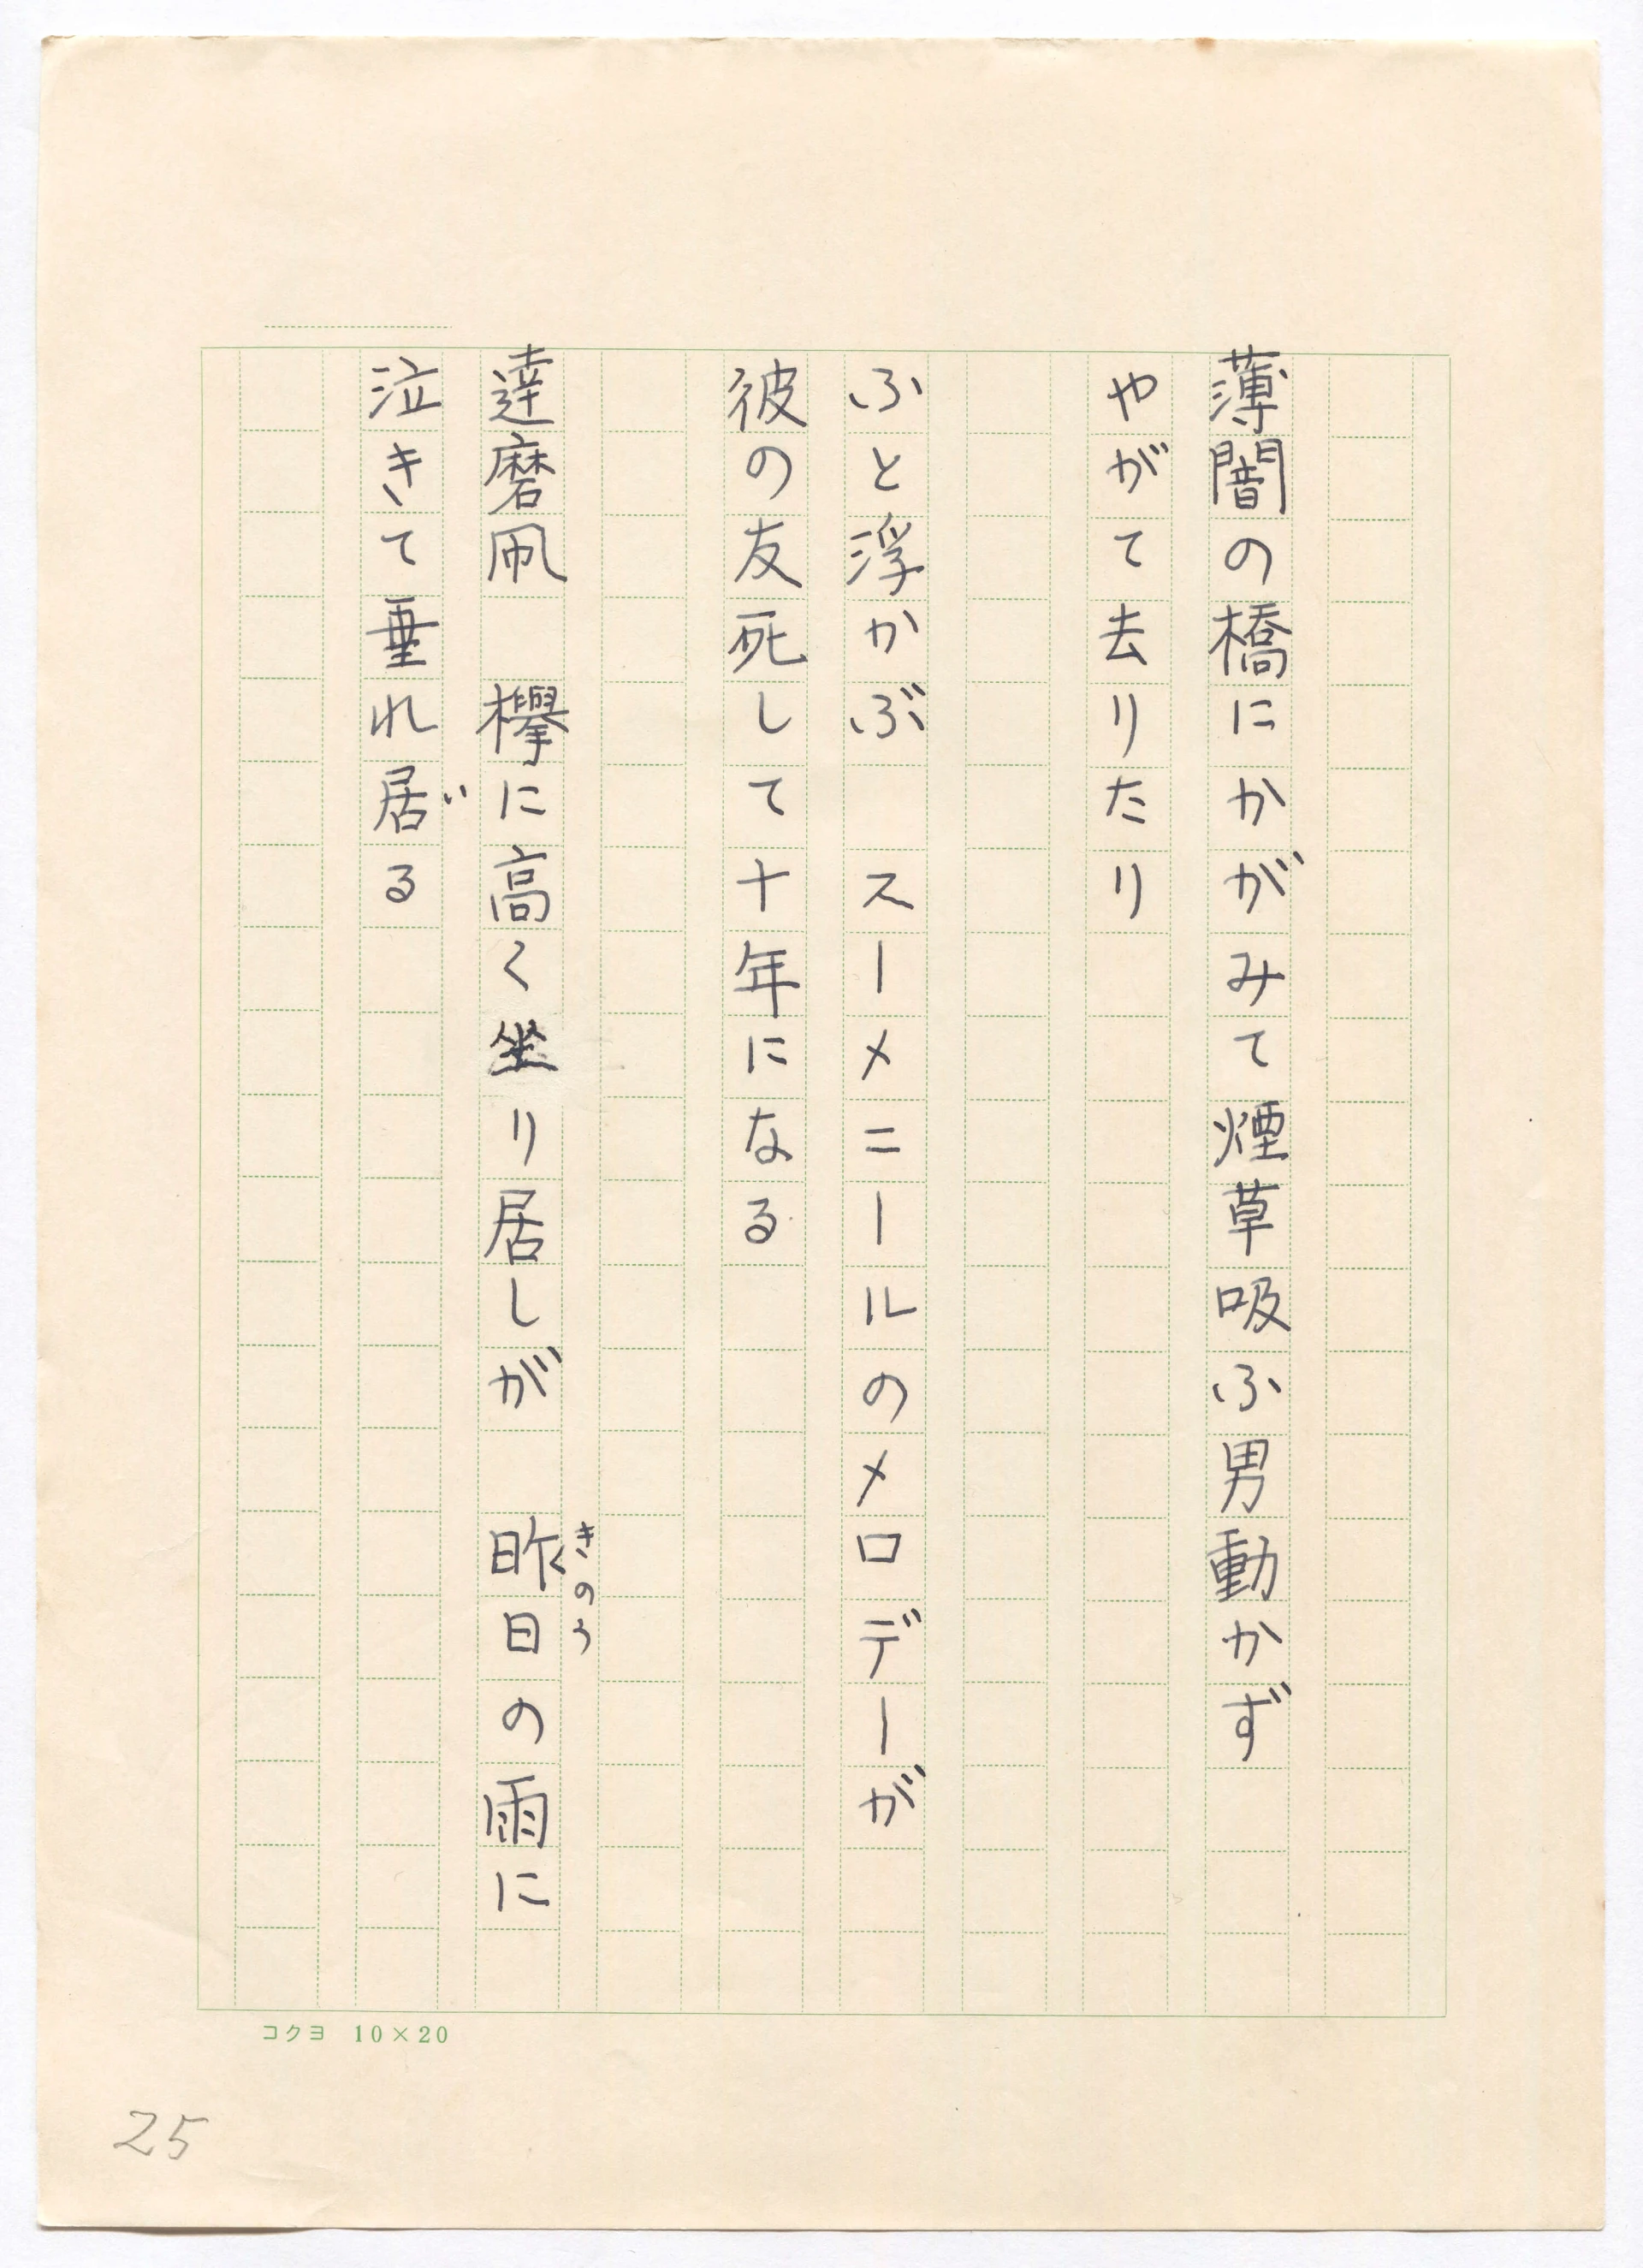 薄闇の橋にかがみて煙草吸ふ男動かず
やがて去りたり
ふと浮かぶ　スーメニールのメロデーが
彼の友死して十年になる
達磨凧　欅に高く坐り居しが　昨日の雨に
きのう
泣きて垂れ居る
ゐ
コクヨ 10×20
25